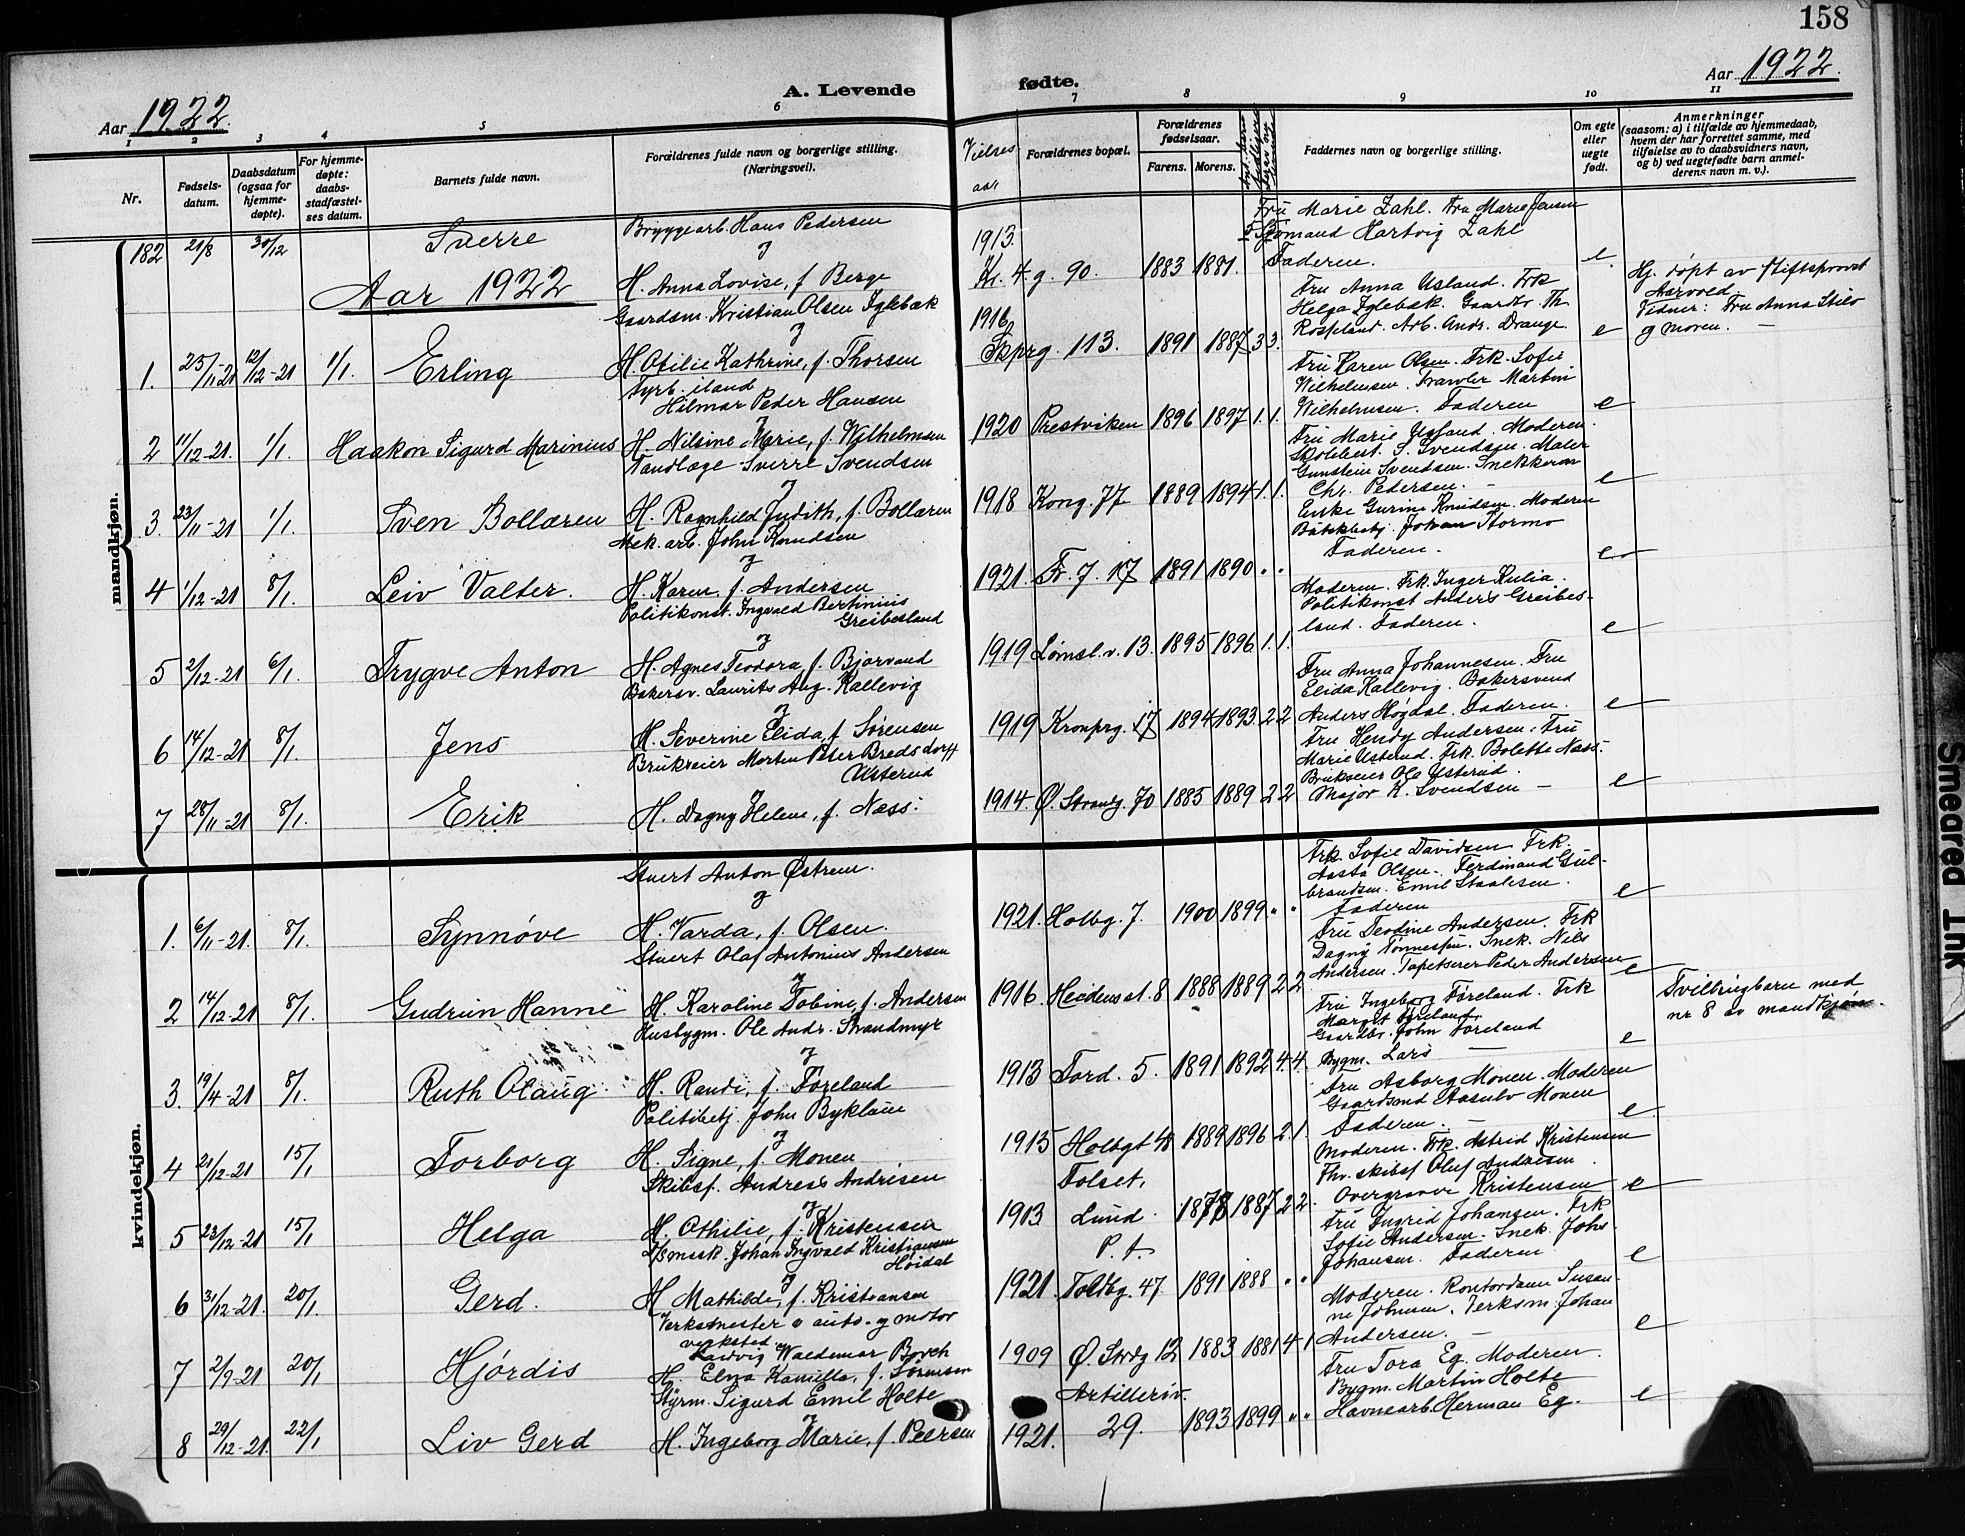 158
Aar 1922.
A. Levende
fødte.
Aar 1922.
1
2
3
4
5
6
7
8
9
10
11
Nr.
Fødsels-
datum.
Daabsdatum
(ogsaa for
hjemme-
døpte).
For hjemme-
døpte:
daabs-
stadfæstel-
ses datum.
Barnets fulde navn.
Forældrenes fulde navn og borgerlige stilling.
(Næringsvei).
Vielses
aar
Forældrenes bopæl.
Forældrenes
fødselsaar.
Farens. Morens.
Faddernes navn og borgerlige stilling.
Om egte
eller
uegte
født.
Anmerkninger
(saasom: a) i tilfælde av hjemmedaab,
hvem der har forrettet samme, med
tilføielse av to daabsvidners navn,
og b) ved uegtefødte barn anmel-
derens navn m. v.).
mandkjøn.
182 21/8 30/12 Sverre
Bryggearb. Hans Pedersen
og
H. Anna Lovise, f. Berge
1913. Kr. 4. g. 90. 1883 1881.
Fru Marie Zahl. Fru Marie Jensen
Hartvig Zahl
Faderen. e.
Aar 1922
1. 25/11-21 12/12-21 1/1. Erling
Gaardsm. Kristian Olsen Iglebæk
og
H. Otilie Kathrine, f. Thorsen
1916 Skprg. 113. 1891 1887 3 3.
Fru Anna Usland. Frk
Helga Iglebæk. Gaardbr. Th.
Rospland. Arb. Andr. Drange e
Hj. døpt av Stiftsprovst
Aarvold.
Vidner: Fru Anna
og moren. —
2 11/12-21 1/1. Haakon Sigurd Marinius
Fyrb. iland
Hilmar Peder Hansen
og
H. Nilsine Marie, f. Wilhelmsen
1920 Prestviken 1896 1897 1. 1.
Fru Karen Olsen. Frk. Sofie
Wilhelmsen. Martin
Wilhelmsen. Faderen e
3. 23/11-21 1/1. Sven Bollæren
Tandlæge Sverre Svendsen
og
H. Ragnhild Judith, f. Bollæren
1918 Kong. 77 1889 1894 1. 1.
Fru Marie Usland. Moderen.
Skolebest. S. Svendsen. Maler
Gunstein Svendsen. Snekkerm
Chr. Pedersen. — e
4 1/12-21 8/1. Leiv Valter.
Mek. arb. John Knudsen
og
H. Karen, f. Andersen
1921. Fr. 7. 17 1891 1890 " "
Enke Gurine Knudsen. Moderen
Johan Stormo
Faderen. e
5 2/12-21 6/1. Trygve Anton
Politikonst. Ingvald Bertinius
Greibesland
og
H. Agnes Teodora, f. Bjorvand
1919 Lømsl. v. 13. 1895 1896 1. 1.
Moderen. Frk. Inger Julia.
Politikonst Anders Greibes-
land. Faderen. e
6 14/12-21 8/1. Jens
Bakersv. Laurits Aug. Kallevig
og
H. Severine Elida, f. Sørensen
1919 Kronprg. 17 1894 1893 2 2
Fru Anna Johannesen. Fru
Elida Kallevig. Bakersvend
Anders Høgdal. Faderen. e
7 28/11-21 8/1. Erik
Brukseier Morten Peter Bredsdorff
Usterud
og
H. Dagny Helene, f. Næss.
1914. Ø. Strandg. 70 1885 1889 2 2
Fru Hendy Andersen. Fru
Marie Usterud. Frk. Bolette Næss.
Brukseier Ole Usterud.
Major K. Svendsen — e
kvindekjøn.
1. 6/11-21. 8/1. Synnøve
Stuert Anton Østrem.
og
H. Varda, f. Olsen.
1921. Holbg. 7. 1900 1899 " "
Frk. Sofie Davidsen Frk.
Aasta Olsen. Ferdinand Gul-
brandsen. Emil Staalesen.
Faderen e
2 14/12-21 8/1. Gudrun Hanne
Stuert Olaf Antonius Andersen
og
H. Karoline Tobine, f. Andersen
1916. Heidens st. 8 1888 1889 2 2
Fru Teodine Andersen. Frk
Dagny Tønnessen. Snek. Nils
Andersen. Tapetserer Peder Andersen e
3. 19/4-21 8/1. Ruth Olaug.
Husbygm. Ole Andr. Strandmyr
og
H. Randi, f. Føreland
1913 Tord. 5. 1891 1892 4. 4.
Fru Ingeborg Føreland. Frk
Margit Føreland.
Gaardbr. John Føreland
Bygm. Lars — e
Tvillingbarn med
nr 8 av mandkjøn.
4 21/12-21 15/1 Torborg
Politibetj. John Bykløum
og
H. Signe, f. Monen
1915 Holbgt 48 1889 1896 2. 1.
Fru Asborg Monen. Moderen
Gaardsmd Aasulv Monen
Faderen. — e
5 23/12-21 15/1 Helga
Skibsf. Andreas Andrisen
og
H. Othilie, f. Kristensen
1913 Tolset, Lund. 1878 1887 2 2.
Moderen. Frk. Astrid Kristensen
Fhv. skibsf Oluf Andresen.
Overgraver Kristensen e
6 31/12-21. 20/1 Gerd.
Johan Ingvald Kristiansen
Høidal
og
H. Mathilde, f. Kristiansen
1921. P. t. Toldbg. 47. 1891 1888 " "
Fru Ingrid Johansen. Frk
Sofie Andersen. Snek. Johs
Johansen. Faderen e
7 2/9-21 20/1 Hjørdis
Verksmester v auto- og motor
verksted
Ludvig Waldemar Borch
H. Elna Kamilla, f. Sørensen
1909 Ø. Strdg 12 1883 1881 4 1
Moderen. Kontordame Susan-
ne Johnsen. Verksm. Johan
Andersen. — e
8 29/12-21. 22/1 Liv Gerd
Styrm. Sigurd Emil Holte
og
H. Ingeborg Marie, f. Peersen
1921. Artilleriv. 29. 1893 1899 " "
Fru Tora Eg. Moderen.
Bygm. Martin Holte
Havnearb. Herman Eg. e
Smeared Ink